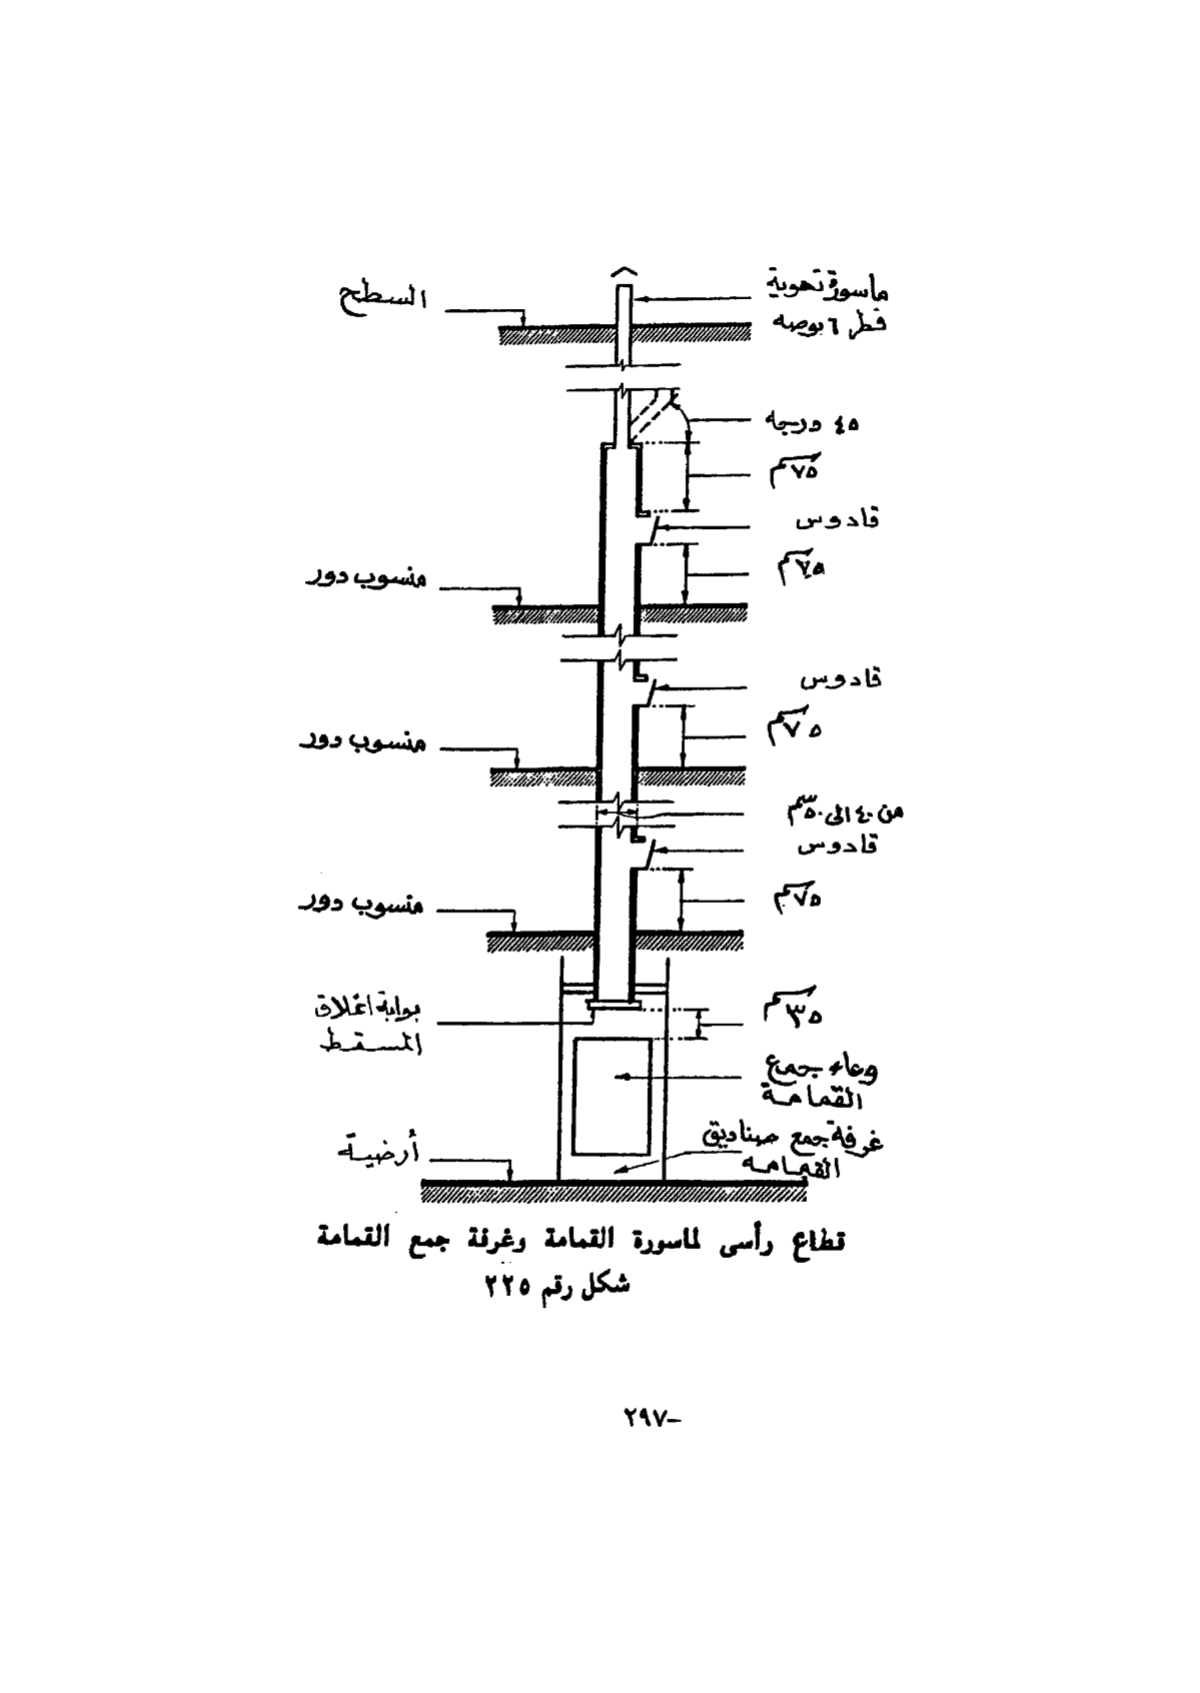 ماسورة تهوية
قطر ٦ بوصه
السطح
٤٥ درجه
٧٥سم
قادوس
٧٥سم
منسوب دور
قادوس
٧٥سم
منسوب دور
من ٤٠ الى ٥٠سم
قادوس
٧٥سم
منسوب دور
بوابة اغلاق
المسقط
٣٥سم
وعاء جمع
القمامة
غرفة جمع صناديق
القمامه
أرضية
قطاع رأسى لماسورة القمامة وغرفة جمع القمامة
شكل رقم ٢٢٥
٢٩٧-